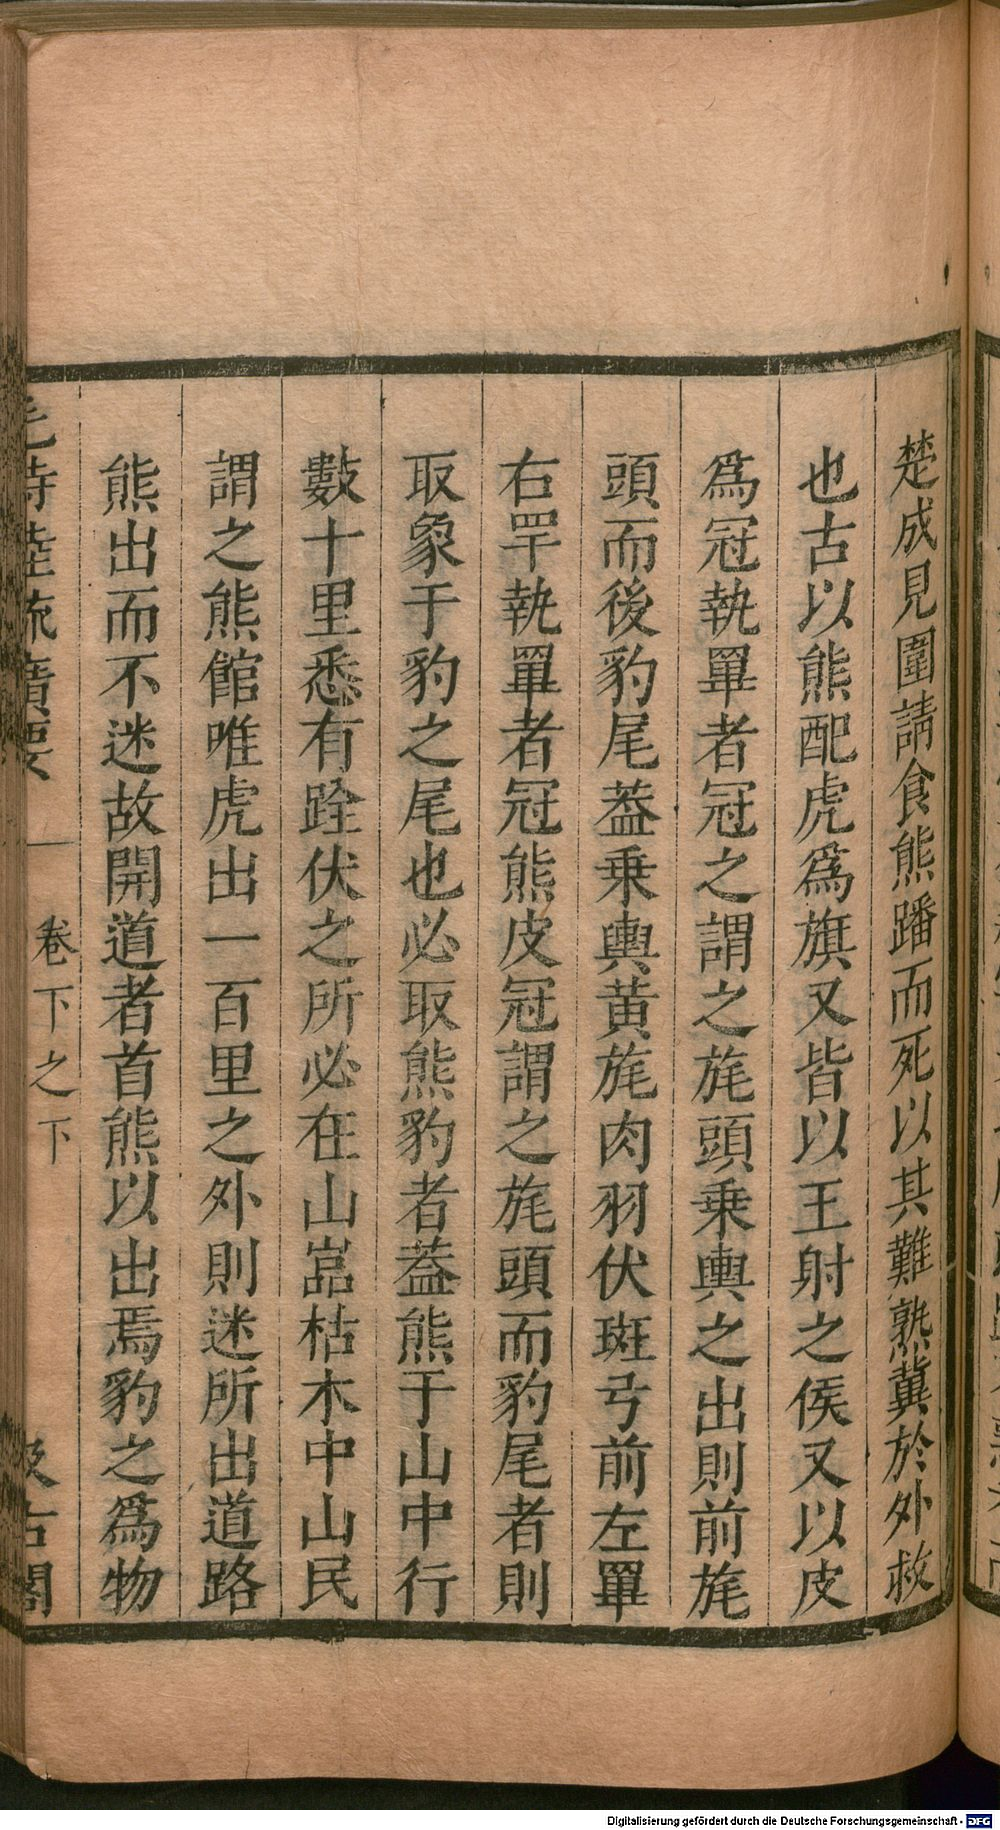 楚成見圍請食熊蹯而死以其難熟冀於外救
也古以熊配虎爲旗又皆以王射之侯又以皮
爲冠執罼者冠之謂之旄頭乗輿之出則前旄
頭而後豹尾葢乗輿黄旄肉羽伏斑弓前左罼
右罕執罼者冠熊皮冠謂之旄頭而豹尾者則
取象于豹之尾也必取熊豹者葢熊于山中行
數十里悉有跧伏之所必在山嵓枯木中山民
謂之熊館唯虎出一百里之外則迷所出道路
熊出而不迷故開道者首熊以出焉豹之爲物
毛詩陸疏廣要
卷下之下
汲古閣
Digitalisierung gefördert durch die Deutsche Forschungsgemeinschaft - DFG